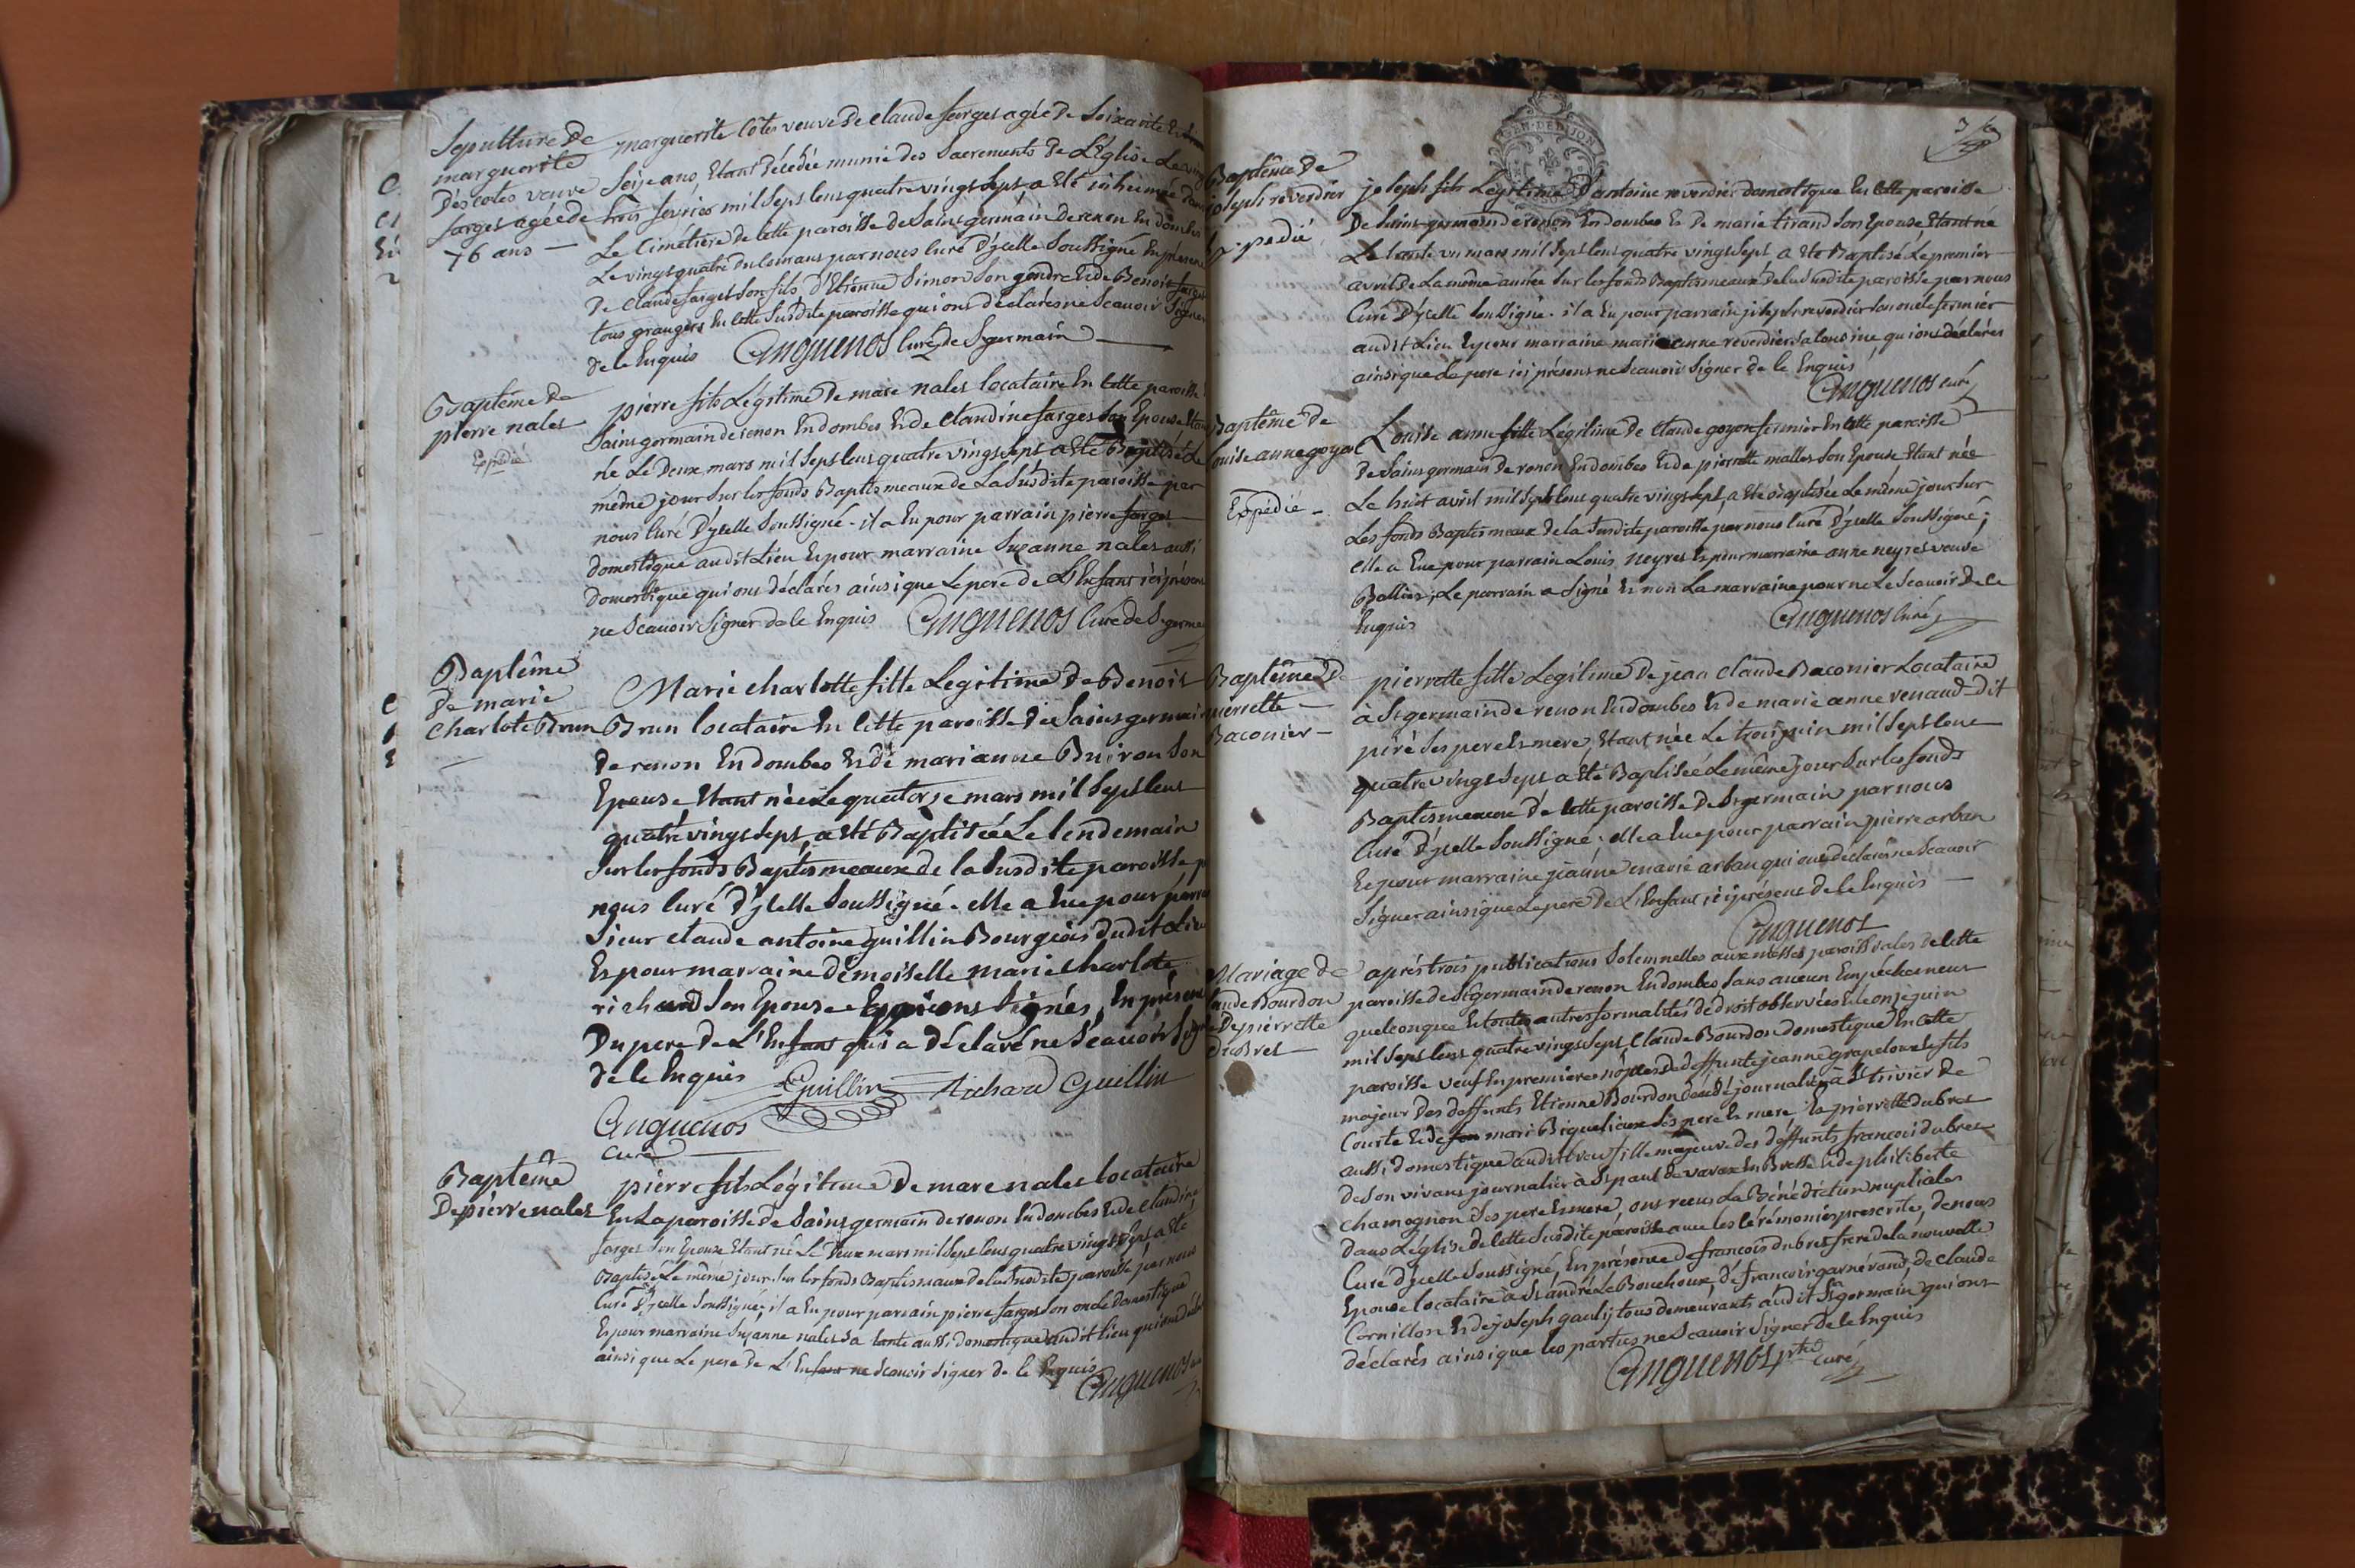 Sepulture de
marguerite
Descotes veuve
farges agée de
76 ans —
marguerite Côtes veuve de claude farges agée de Soixante et
Seize ans, Etant décédée munie des Sacrements de L'église Le vingt
trois fevrier mil Sept Cens quatre vingt Sept a été inhumée dans
Le Cimetière de Cette paroisse de Saint germain de renon En dombes
Le vingt quatre du Courant par nous Curé d'ycelle Soussigné En présence
de claude farges Son fils d'Etienne Simon Son gendre Et de Benoit farges
tous grangers En Cette Susdite paroisse qui ont déclarés ne Scavoir Signer
de Ce Enquis Anguenos Curé de St germain
Baptême de
pierre nales
Expédié
pierre fils Légitime de marc nales locataire En Cette paroisse
Saint germain de renon En dombes Et de Claudine farges Son Epouse Etant
né Le Deux mars mil Sept Cens quatre vingt Sept a été Baptisé Le
même jour Sur les fonds Baptismeaux de La Susdite paroisse par
nous Curé d'ycelle Soussigné. il a Eu pour parrain pierre farges
domestique audit Lieu Et pour marraine Suzanne nales aussi
domestique qui ont déclarés ainsi que Le pere de L'Enfant ici présent
ne Scavoir Signer de Ce Enquis Anguenos Curé de St germain
Baptême
de marie
Charlote Brun
Marie charlotte fille Legitime de Benoit
Brun locataire En Cette paroisse de Saint germain
de renon En dombes Et de marianne Buiron Son
Epouse Etant née Le quatorze mars mil Sept Cens
quatre vingt Sept, a été Baptisée Le lendemain
Sur les fonds Baptismeaux de la Susdite paroisse p
nous Curé d'ycelle Soussigné. elle a Eue pour parrain
Sieur claude antoine guillin Bourgeois dudit Lieu
Et pour marraine démoiselle marie charlote
richard Son Epouse Et qui ont Signés, En présence
Du pere de L'Enfant qui a déclaré ne Scavoir Signer
de Ce Enquis Guillin Richard Guillin
Anguenos
Curé
Baptême
De pierre nales
pierre fils Légitime de marc nales locataire
En La paroisse de Saint germain de renon En dombes Et de claudine
farges Son Epouse Etant né Le Deux mars mil Sept Cens quatre vingt Sept a été
Baptisé Le même jour Sur les fonds Baptismaux de la Susdite paroisse par nous
Curé d'ycelle Soussigné; il a Eu pour parrain pierre farges Son oncle domestique
Et pour marraine Suzanne nales Sa tante aussi domestique audit lieu qui ont déclarés
ainsi que Le pere de L'Enfant ne Scavoir Signer de Ce Enquis
Anguenos
Baptême de
joseph reverdier
Expedié
joseph fils Legitime d'antoine reverdier domestique En Cette paroisse
De Saint germain de renon En dombes Et De marie tirand Son Epouse, Etant né
Le trante un mars mil Sept Cens quatre vingt Sept a été Baptisé Le premier
avril de La même année Sur les fonds Baptismeaux de la Susdite paroisse par nous
Curé d'ycelle Soussigné. il a Eu pour parrain joseph reverdier Son oncle fermier
audit Lieu Et pour marraine marie anne reverdier Sa Cousine qui ont déclarés
ainsi que Le pere ici présent ne Scavoir Signer de Ce Enquis
Anguenos curé
Baptême de
Louise anne goyon
Expédié —
Louise anne fille Légitime de Claude goyon fermier En Cette paroisse
de Saint germain de renon En dombes Et de pierrette malles Son Epouse Etant née
Le huit avril mil Sept Cens quatre vingt Sept, a été Baptisée Le même jour Sur
Les fonds Baptismeaux de la Susdite paroisse par nous Curé d'ycelle Soussigné;
elle a Eue pour parrain Louis neyres Et pour marraine anne neyres veuve
Ballier; Le parrain a Signé Et non La marraine pour ne Le Scavoir De Ce
Enquis Anguenos Curé
Baptême de
pierrette —
Baconier —
pierrette fille Legitime de jean claude Baconier Locataire
à St germain de renon En dombes Et de marie anne renaud dit
piré Ses pere Et mere, Etant née Le trois juin mil Sept Cens
quatre vingt Sept a été Baptisée Le même jour Sur les fonds
Baptismeaux de Cette paroisse de St germain par nous
Curé d'ycelle Soussigné; elle a Eue pour parrain pierre arban
Et pour marraine jeanne marie arban qui ont déclarés ne Scavoir
Signer ainsi que Le pere de L'Enfant, ici présent de Ce Enquis —
Anguenos
Mariage de
Claude Bourdon
Et De pierrette
duBres —
après trois publications Solemnelles aux messes paroissiales de Cette
paroisse de St germain de renon En dombes Sans aucun Empêchement
quelconque Et toutes autres formalités de droit observées Le onze juin
mil Sept Cens quatre vingt Sept, Claude Bourdon domestique En Cette
paroisse veuf En premieres nôpces de deffunte jeanne grapeloux Et fils
majeur des deffunts Etienne Bourdon décédé journalier à St trivier de
Courte Et de mari Biguelioux Ses pere Et mere Et pierrette dubres
aussi domestique audit lieu fille majeure des deffunts francois dubres
de Son vivant journalier à St paul de varax En Bresse Et de philiberte
chamognon Ses pere Et mere, ont recus La Bénédiction nuptiales
dans L'église de Cette Susdite paroisse avec les Cérémonies prescrite, de nous
Curé d'ycelle Soussigné, En présence de francois dubres frere de la nouvelle
Epouse locataire à St andré Le Bouchoux, de francois garnérand, de claude
Cornillon Et de joseph gaulj tous demeurants audit St germain qui ont
déclarés ainsi que les parties ne Scavoir Signer de Ce Enquis
Anguenos ptre curé